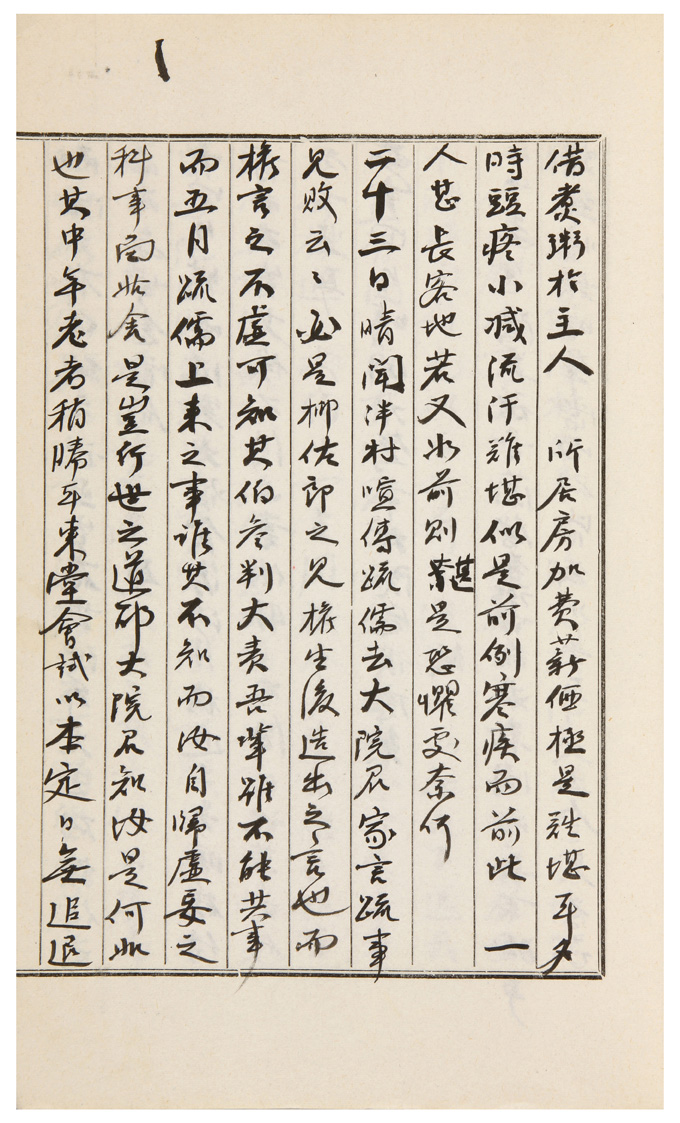 借煮粥於主人 所居房加費薪価極是難堪耳夕
時頭疼小減流汗難堪似是前例寒疾而前此一
人甚長客地若又如前則甚是恐懼更奈何
二十三日晴聞泮村喧傳疏儒去大院君家言疏事
見敗云々必是柳佐郎之見權生後造出之言也而
權言之不虛可知其伯參判大責吾輩雖不能共事
而五月疏儒上來之事誰其不知而汝自歸虛妄之
科事同此舍是豈行世之道耶大院君知汝是何如
也其中年老者稍勝耳東堂會試以本定日無退退